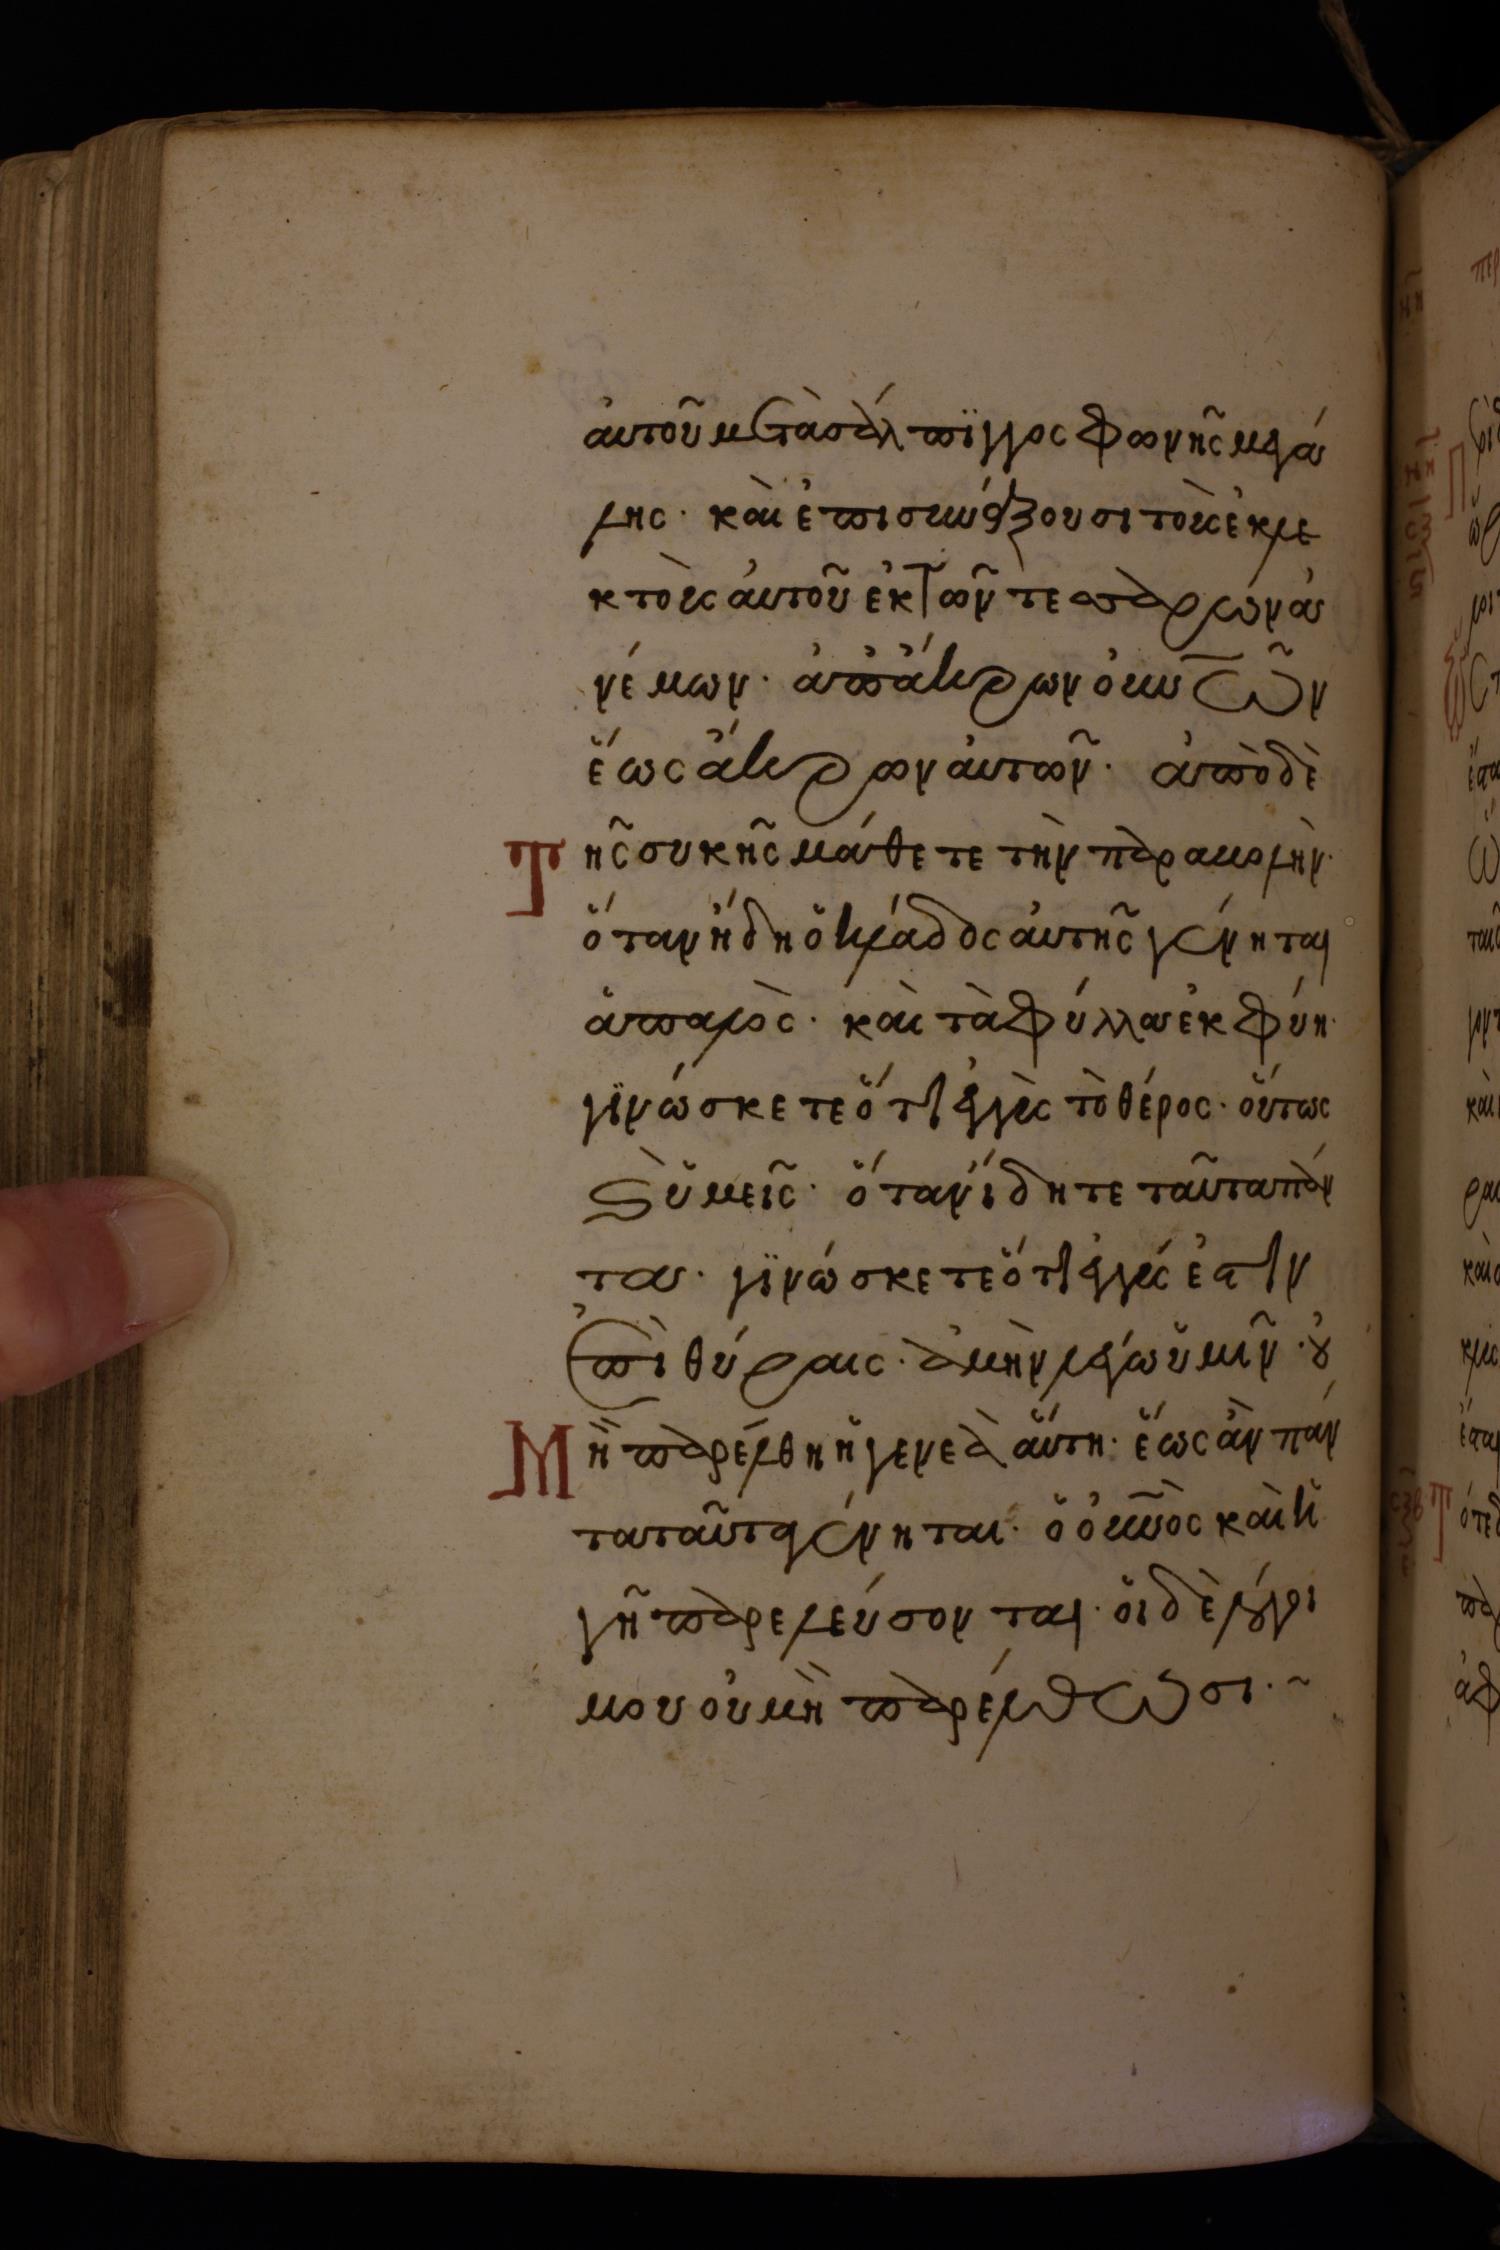 αὐτοῦ μετὰ σάλπϊγγος φωνῆς μεγά
λης· καὶ ἐπισυνάξουσι τοὺς ἐκλε
κτοὺς αὐτοῦ ἐκ τῶν τεσσάρων ἀ
νέμων· ἀπ' ἄκρων οὐνῶν
ἕως ἄκρων αὐτῶν· ἀπὸ δὲ
Τῆς συκῆς μάθετε τὴν παραβολὴν·
ὅταν ἤδη ὁ κλάδος αὐτῆς γένηται
ἁπαλὸς· καὶ τὰ φύλλα ἐκφύη·
γϊνώσκετε ὅτι ἐγγὺς τὸ θέρος· οὕτως
καὶ ὑμεῖς· ὅταν ἴδητε ταῦτα πάν
τα· γϊνώσκετε ὅτι ἐγγύς ἐστιν
ἐπὶ θύραις· ἀμὴν λέγω ὑμῖν· οὐ
Μὴ παρέλθη ἡ γενεὰ αὕτη· ἕως ἂν πάν
τα ταῦτα γένηται· ὁ οὐνὸς καὶ ἡ
γῆ παρελεύσονται· οἱ δὲ λόγοι
μου οὐ μὴ παρέλθωσι·~